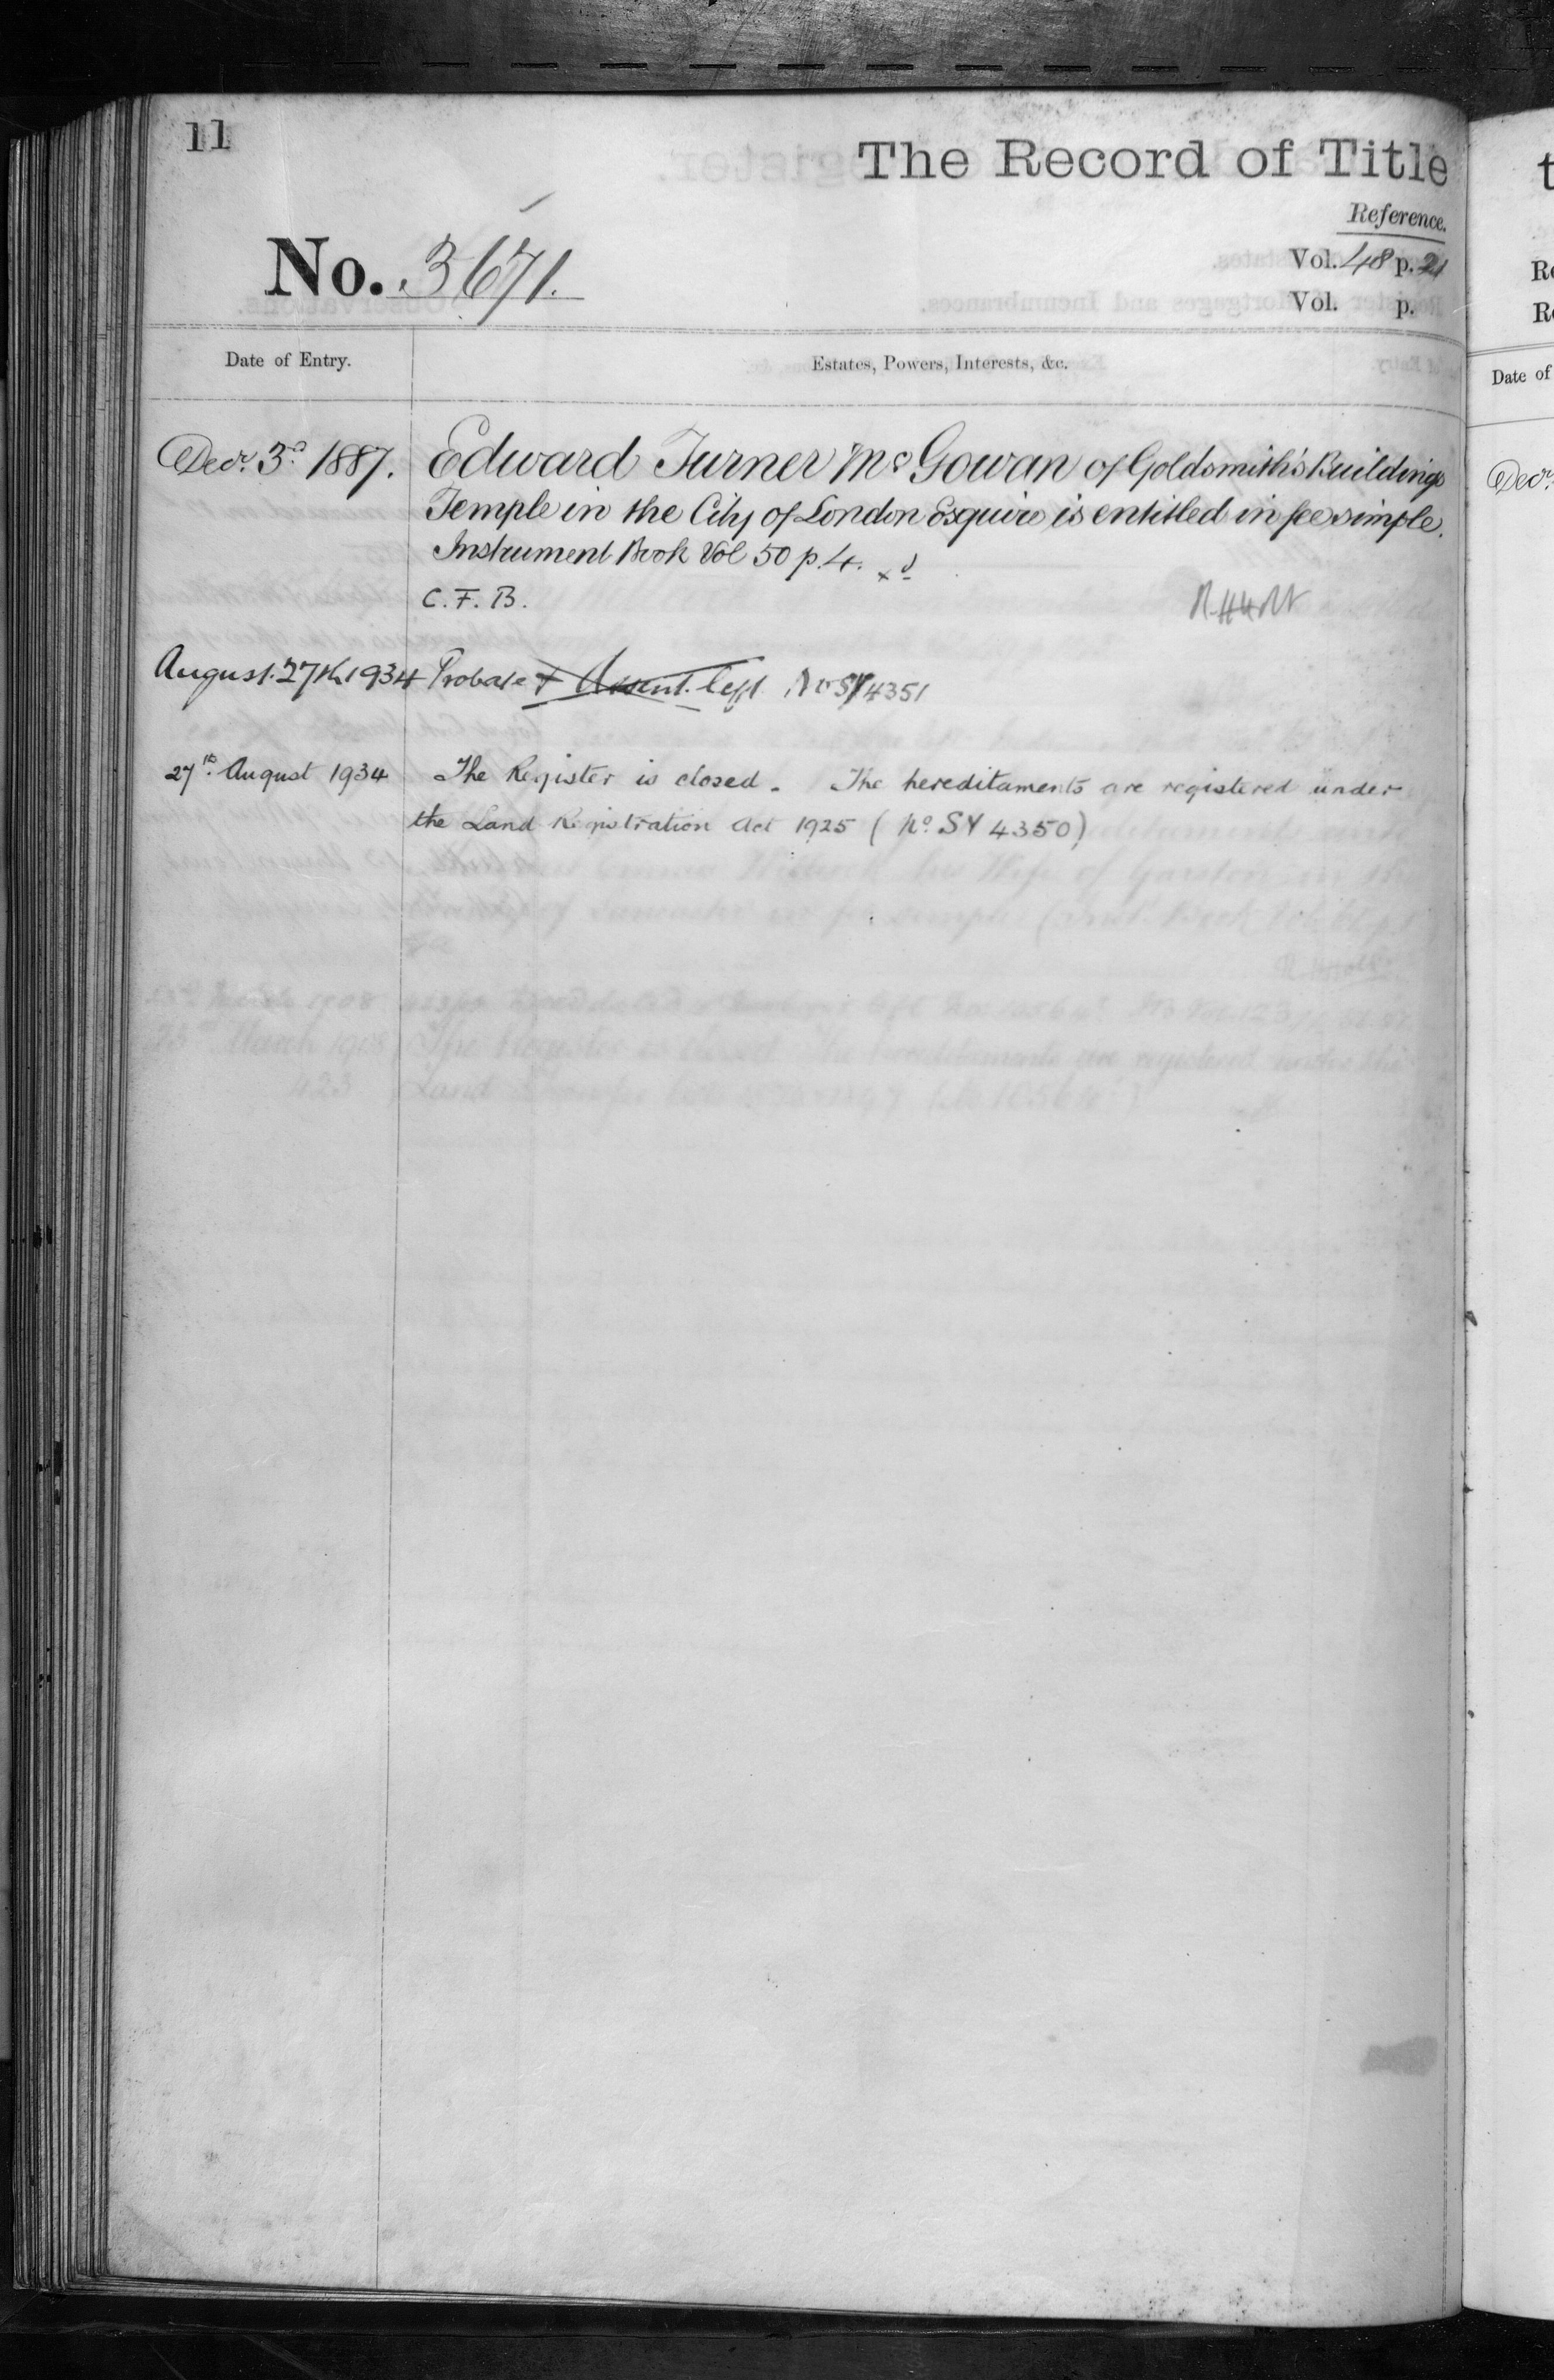 11
The Record of Title
Reference.
No. 3671.
Vol. 48 p. 21
Vol. p.
Date of Entry.
Estates, Powers, Interests, &c.
Decr. 3d 1887. Edward Turner McGowan of Goldsmith's Buildings
Temple in the City of London Esquire is entitled in fee simple.
Instrument Book Vol 50 p. 4.
C. F. B.
August 27th 1934 Probate & Assent. left No SY 4351
27th August 1934 The Register is closed. The hereditaments are registered under
the Land Registration Act 1925 (No SY 4350)
t
Re
Re
Date of
Decr.